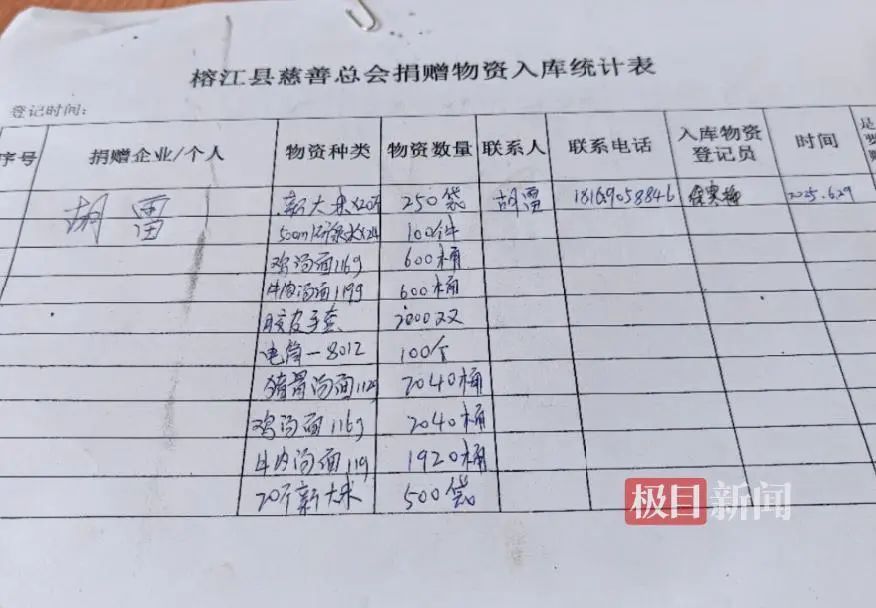 榕江县慈善总会捐赠物资入库统计表
登记时间:
序号 捐赠企业/个人 物资种类 物资数量 联系人 联系电话 入库物资登记员 时间 是
胡雷 新大米×20斤 250袋 胡雷 18169058846 2025.6.29
500ml 100件
鸡汤面116g 600桶
牛肉汤面119g 600桶
胶皮手套 2000双
电筒-8012 100个
猪骨汤面112g 2040桶
鸡汤面116g 2040桶
牛肉汤面119 1920桶
20斤新大米 500袋
极目新闻